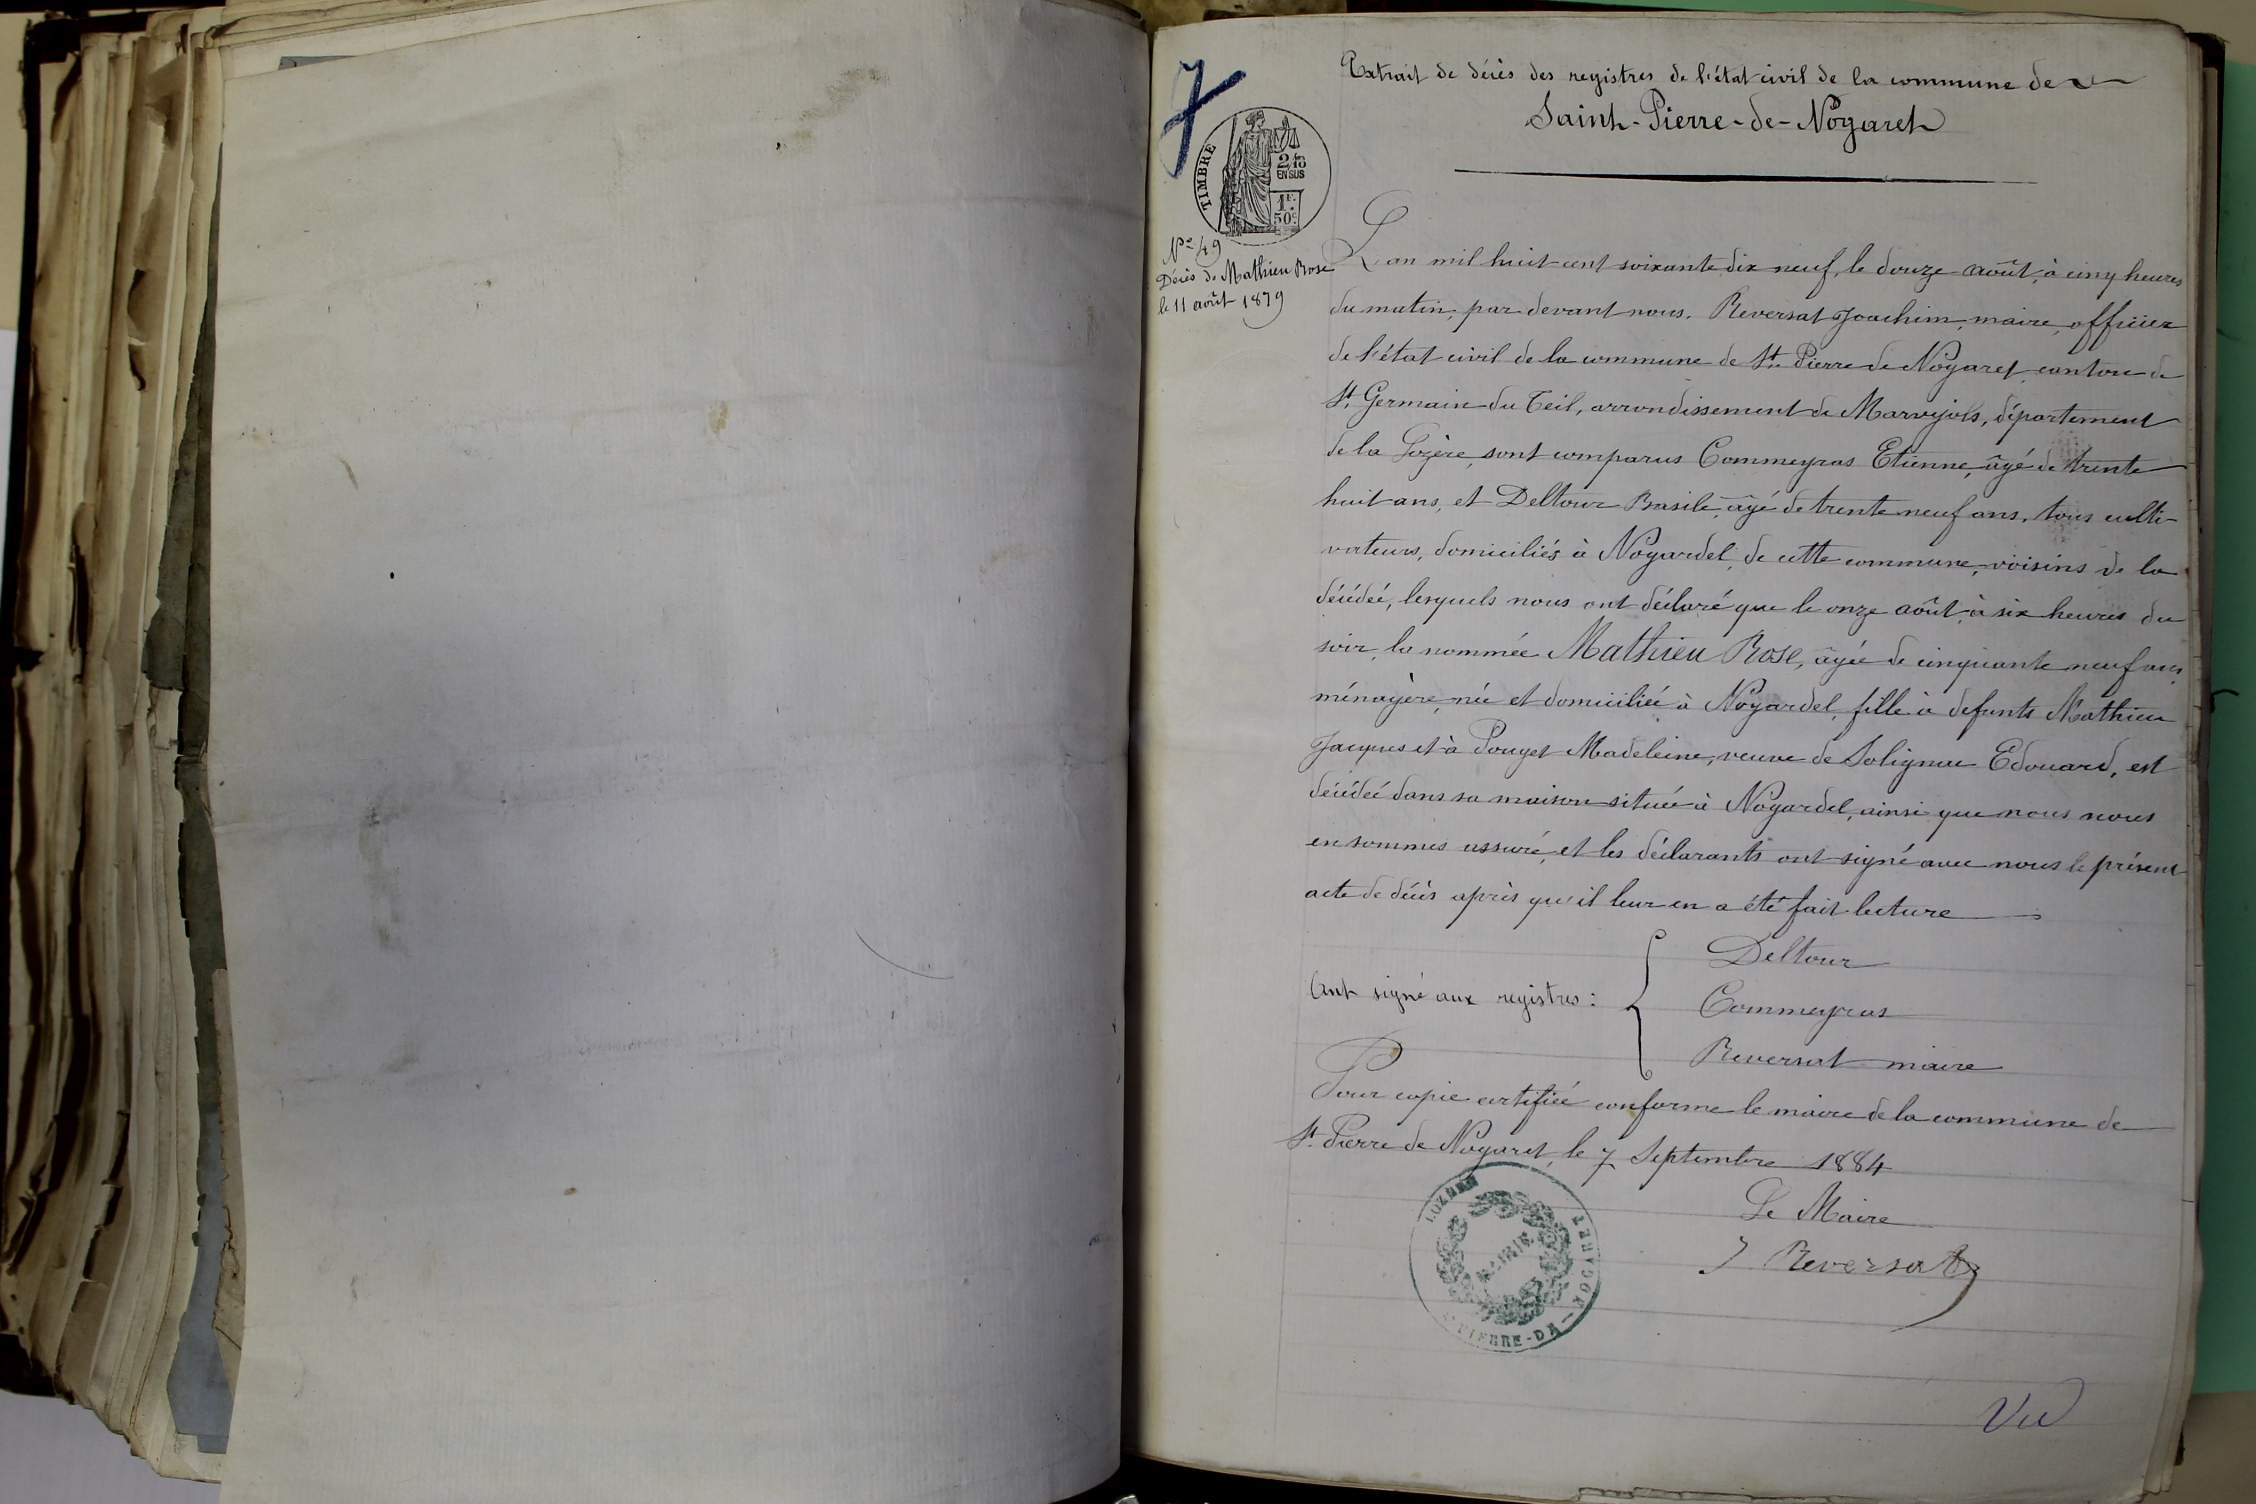 7
Extrait de décès des registres de l'état civil de la commune de
Saint-Pierre-de-Nogaret
TIMBRE
2/10
EN SUS
1F.
50c
No 49
Décès de Mathieu Rose
le 11 août 1879
L'an mil huit cent soixante dix neuf, le douze août, à cinq heures
du matin, par devant nous. Reversat Joachim, maire, officier
de l'état civil de la commune de St. Pierre de Nogaret, canton de
St. Germain du Teil, arrondissement de Marvejols, département
de la Lozère, sont comparus Commeyras Etienne, âgé de trente
huit ans, et Deltour Basile, âgé de trente neuf ans, tous culti-
vateurs, domiciliés à Nogardel, de cette commune, voisins de la
décédée, lesquels nous ont déclaré que le onze août, à six heures du
soir, la nommée Mathieu Rose, âgée de cinquante neuf ans,
ménagère, née et domiciliée à Nogardel, fille à defunts Mathieu
Jacques et à Pouget Madeleine, veuve de Solignac Edouard, est
décédée dans sa maison située à Nogardel, ainsi que nous nous
en sommes assuré, et les déclarants ont signé avec nous le présent
acte de décès après qu'il leur en a été fait lecture
Ont signé aux registres :
Deltour
Commeyras
Reversat maire
Pour copie certifiée conforme le maire de la commune de
St. Pierre de Nogaret, le 7 Septembre 1884
Le Maire
J Reversat
LOZÈRE
MAIRIE
St PIERRE-DE-NOGARET
Vu